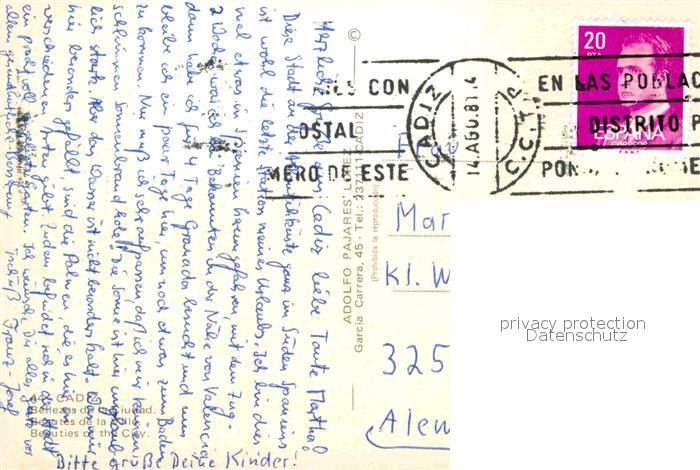 Herzliche Grüße aus Cadiz liebe Tante Mathal
Diese Stadt an der Atlantikküste ganz im Süden Spaniens
ist wohl die letzte Station meines Urlaubs. Ich bin dies-
mal etwas in Spanien herumgefahren mit dem Zug.
2 Wochen war ich bei Bekannten in der Nähe von Valencia
dann habe ich für 4 Tage Granada besucht und nun
bleibe ich ein paar Tage hier, um noch etwas zum Baden
zu kommen. Nur muß ich schon aufpassen daß ich mir keinen
schlimmen Sonnenbrand hole. Die Sonne ist hier unglaub-
lich stark. Aber das Wasser ist nicht besonders kalt. Was mir
hier besonders gefällt, sind die Palmen, die es hier in
verschiedenen Arten gibt. Zudem befindet sich in der Stadt
ein prachtvoll Garten. Ich wünsche Dir alles Gute vor
allem gesundheitliche Besserung. Tschüß Franz-Josef
Bitte grüße Deine Kinder!
44 CADIZ
Bellezas de la Ciudad.
Beautés de la Cité.
Beauties of the City.
©
ADOLFO PAJARES LUQUE
García Carrera, 45 - Tel.: 23 CADIZ
(Prohibida la reproducción)
20
PTA
ESPAÑA
CON
OSTAL
MERO DE ESTE
CADIZ
14 AGO. 81
EN LAS POBLAC
DISTRITO P
Mar
Kl. W
325
Alem
privacy protection
Datenschutz